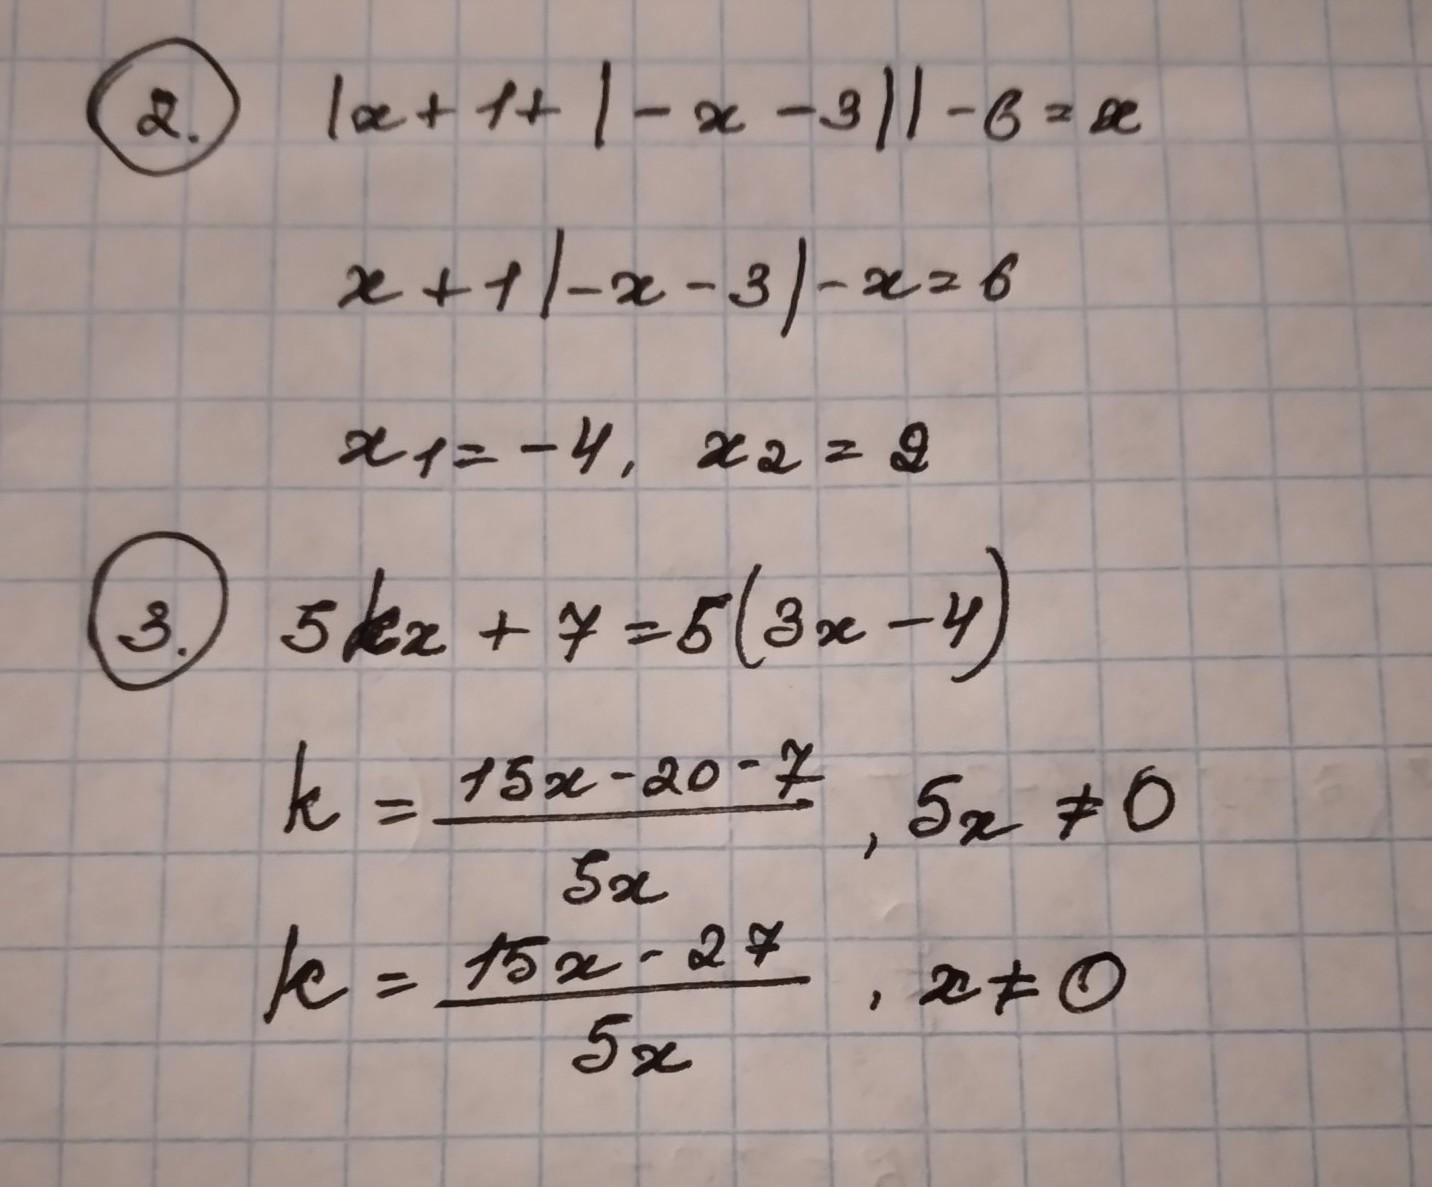 2. |x+1+|-x-3||-6=x
x+1|-x-3|-x=6
x1=-4, x2=2
3. 5kx+7=5(3x-4)
k=15x-20-7/5x, 5x≠0
k=15x-27/5x, x≠0